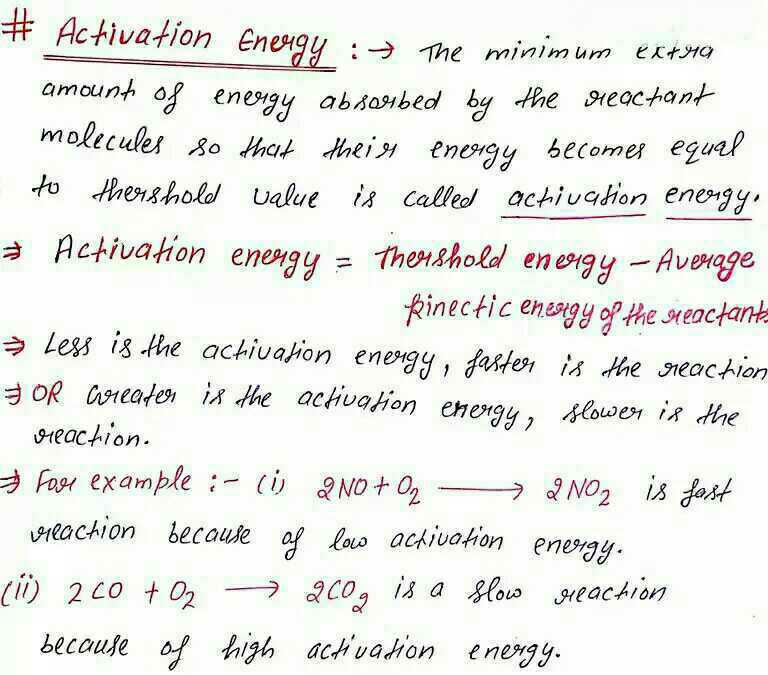 # Activation Energy :→ The minimum extra
amount of energy absorbed by the reactant
molecules so that their energy becomes equal
to thershold value is called activation energy.
⇒ Activation energy = Thershold energy – Average
kinectic energy of the reactants
⇒ Less is the activation energy, faster is the reaction
⇒ OR Greater is the activation energy, slower is the
reaction.
⇒ For example :- (i) 2NO + O₂ ⟶ 2NO₂ is fast
reaction because of low activation energy.
(ii) 2CO + O₂ ⟶ 2CO₂ is a slow reaction
because of high activation energy.